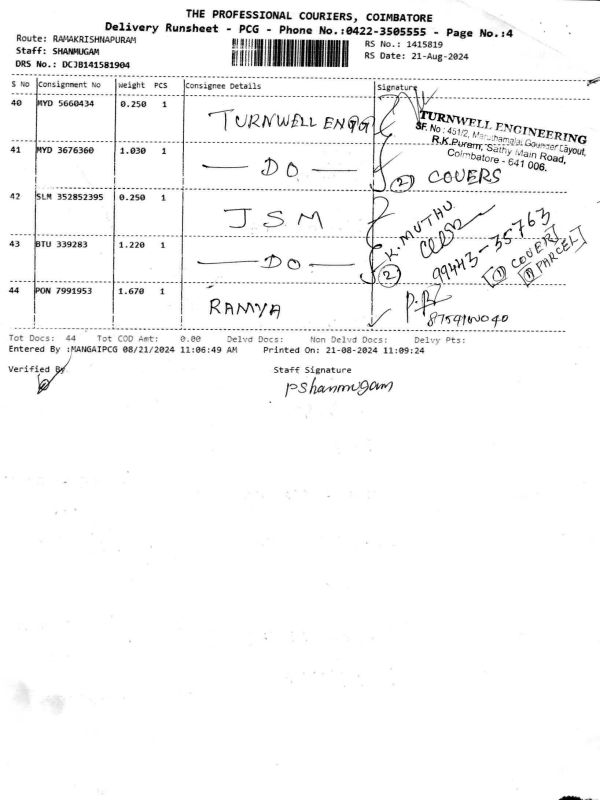 THE PROFESSIONAL COURIERS, COIMBATORE
Delivery Runsheet - PCG - Phone No.:0422-3505555 - Page No.:4
Route: RAMAKRISHNAPURAM
RS No.: 1415819
Staff: SHANMUGAM
RS Date: 21-Aug-2024
DRS No.: DCJB141581904
S No Consignment No Weight PCS Consignee Details Signature
40 MYD 5660434 0.250 1 TURNWELL ENGG
TURNWELL ENGINEERING
SF. No : 451/2, Maruthamalai Gounder Layout,
R.K.Puram, Sathy Main Road,
Coimbatore - 641 006.
41 MYD 3676360 1.030 1 — DO —
2 COVERS
42 SLM 352852395 0.250 1 JSM
K. MUTHU
99443-35763
43 BTU 339283 1.220 1 — DO —
2
1 COVER
1 PARCEL
44 PON 7991953 1.670 1 RAMYA
Tot Docs: 44 Tot COD Amt: 0.00 Delvd Docs: Non Delvd Docs: Delvy Pts:
Entered By :MANGAIPCG 08/21/2024 11:06:49 AM Printed On: 21-08-2024 11:09:24
Verified By
Staff Signature
pshanmugam